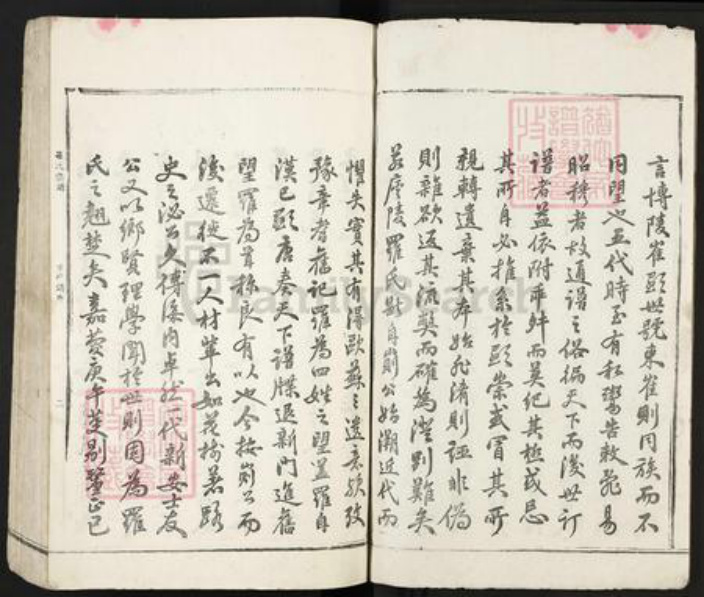 言博陵崔顯世號東崔則同族而不
同望也五代時至有私鬻告敕竄易
昭穆者故通譜之俗徧天下而後世訂
譜者益依附乖舛而莫紀其極或忌
其所自必推系於顯榮或冒其所
親轉遺棄其本始非淆則誣非偽
則雜欲返其流弊而確為澄別難矣
若廬陵羅氏則自崱公始溯近代而
懼失實其有得歐蘇之遺意歟攷
豫章者舊記羅為四姓之望蓋羅自
漢已顯唐奏天下譜牒退新門進舊
望羅為首稱良有以也今按崱公而
後遷徙不一人材輩出如
史之泌公文博深內卓然一代新安士友
公又以鄉賢理學聞於世則固為羅
氏之翹楚矣嘉慶庚午
FamilySearch